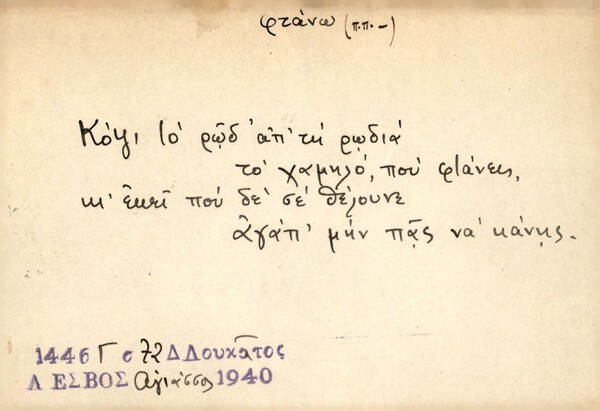 φτάνω (π.π. –)
Κόψι τὸ ρῷδ' ἀπ' τὴ ρῳδιά
τὸ χαμηλό, ποὺ φτάνεις,
κι' ἐκεῖ ποὺ δὲ σὲ θέλουνε
ἀγάπ' μὴν πᾷς νὰ κάνῃς.
1446 Γ σ 72 Δ Λουκᾶτος
ΛΕΣΒΟΣ Ἁγιάσσος 1940